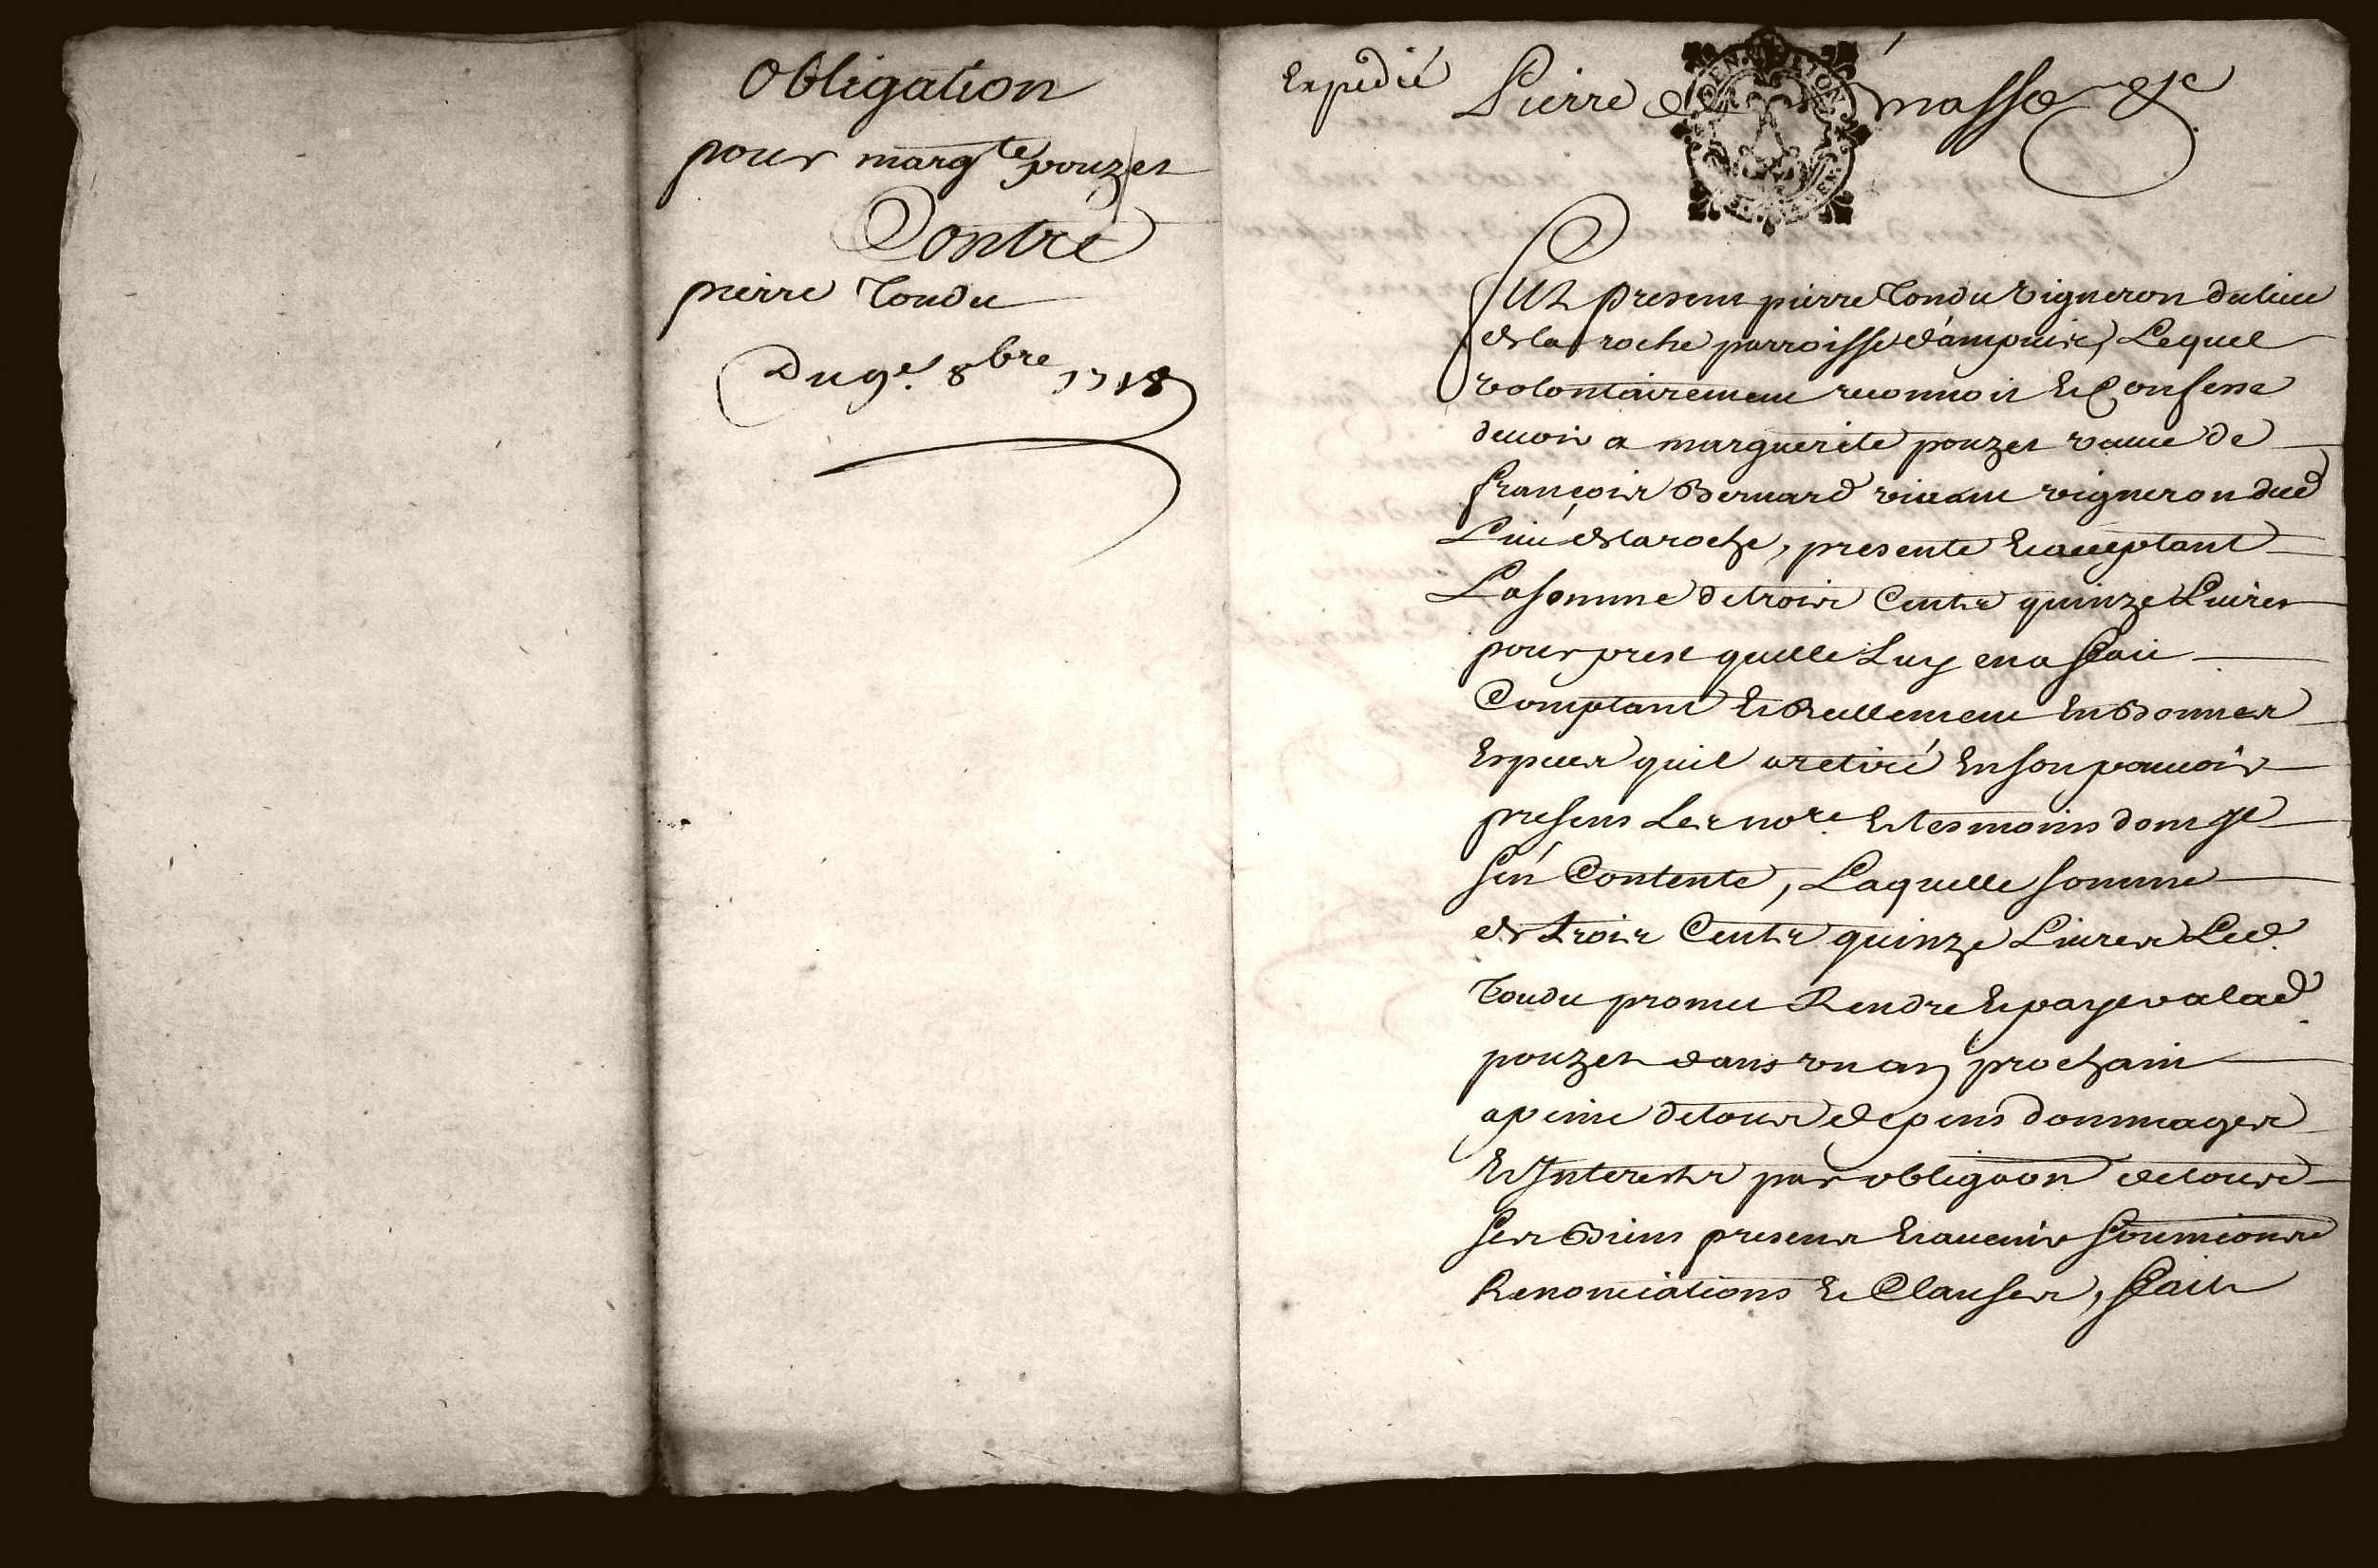 Obligation
pour marg.te pouzet
Contre
pierre Tondu
Du 9e. 8bre 1718
Expedié
Pierre de masso &c
GEN TION
Fut present pierre Tondu vigneron du lieu
de la roche parroisse d'ampuis, Lequel
volontairement reconnoit et Confesse
devoir a marguerite pouzet veuve de
françois Bernard vivant vigneron dud
Lieu de la roche, presente et acceptant
La somme de trois Cents quinze Livres
pour prest quelle Luy en a fait
Comptant et Reellement En Bonnes
Especes quil a retiré En son pouvoir
presens Les no.re et tesmoins dont Il
sen Contente, Laquelle somme
de trois Cents quinze Livres Led.
Tondu promet Rendre et payer a lad.
pouzet dans un an prochain
a peine de tous depens dommages
et Interests par obligaon de tous
ses Biens presens et avenir soumions
Renonciations et Clauses, fait